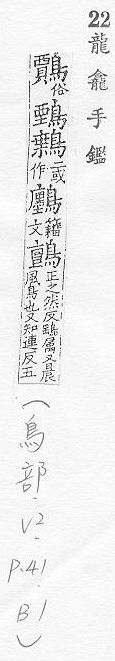 22 龍龕手鑑
俗 二或作 籀文 鸇 正之然反鷂屬又晨風鳥也又知連反五 (鳥部. V2. P.41. B1)